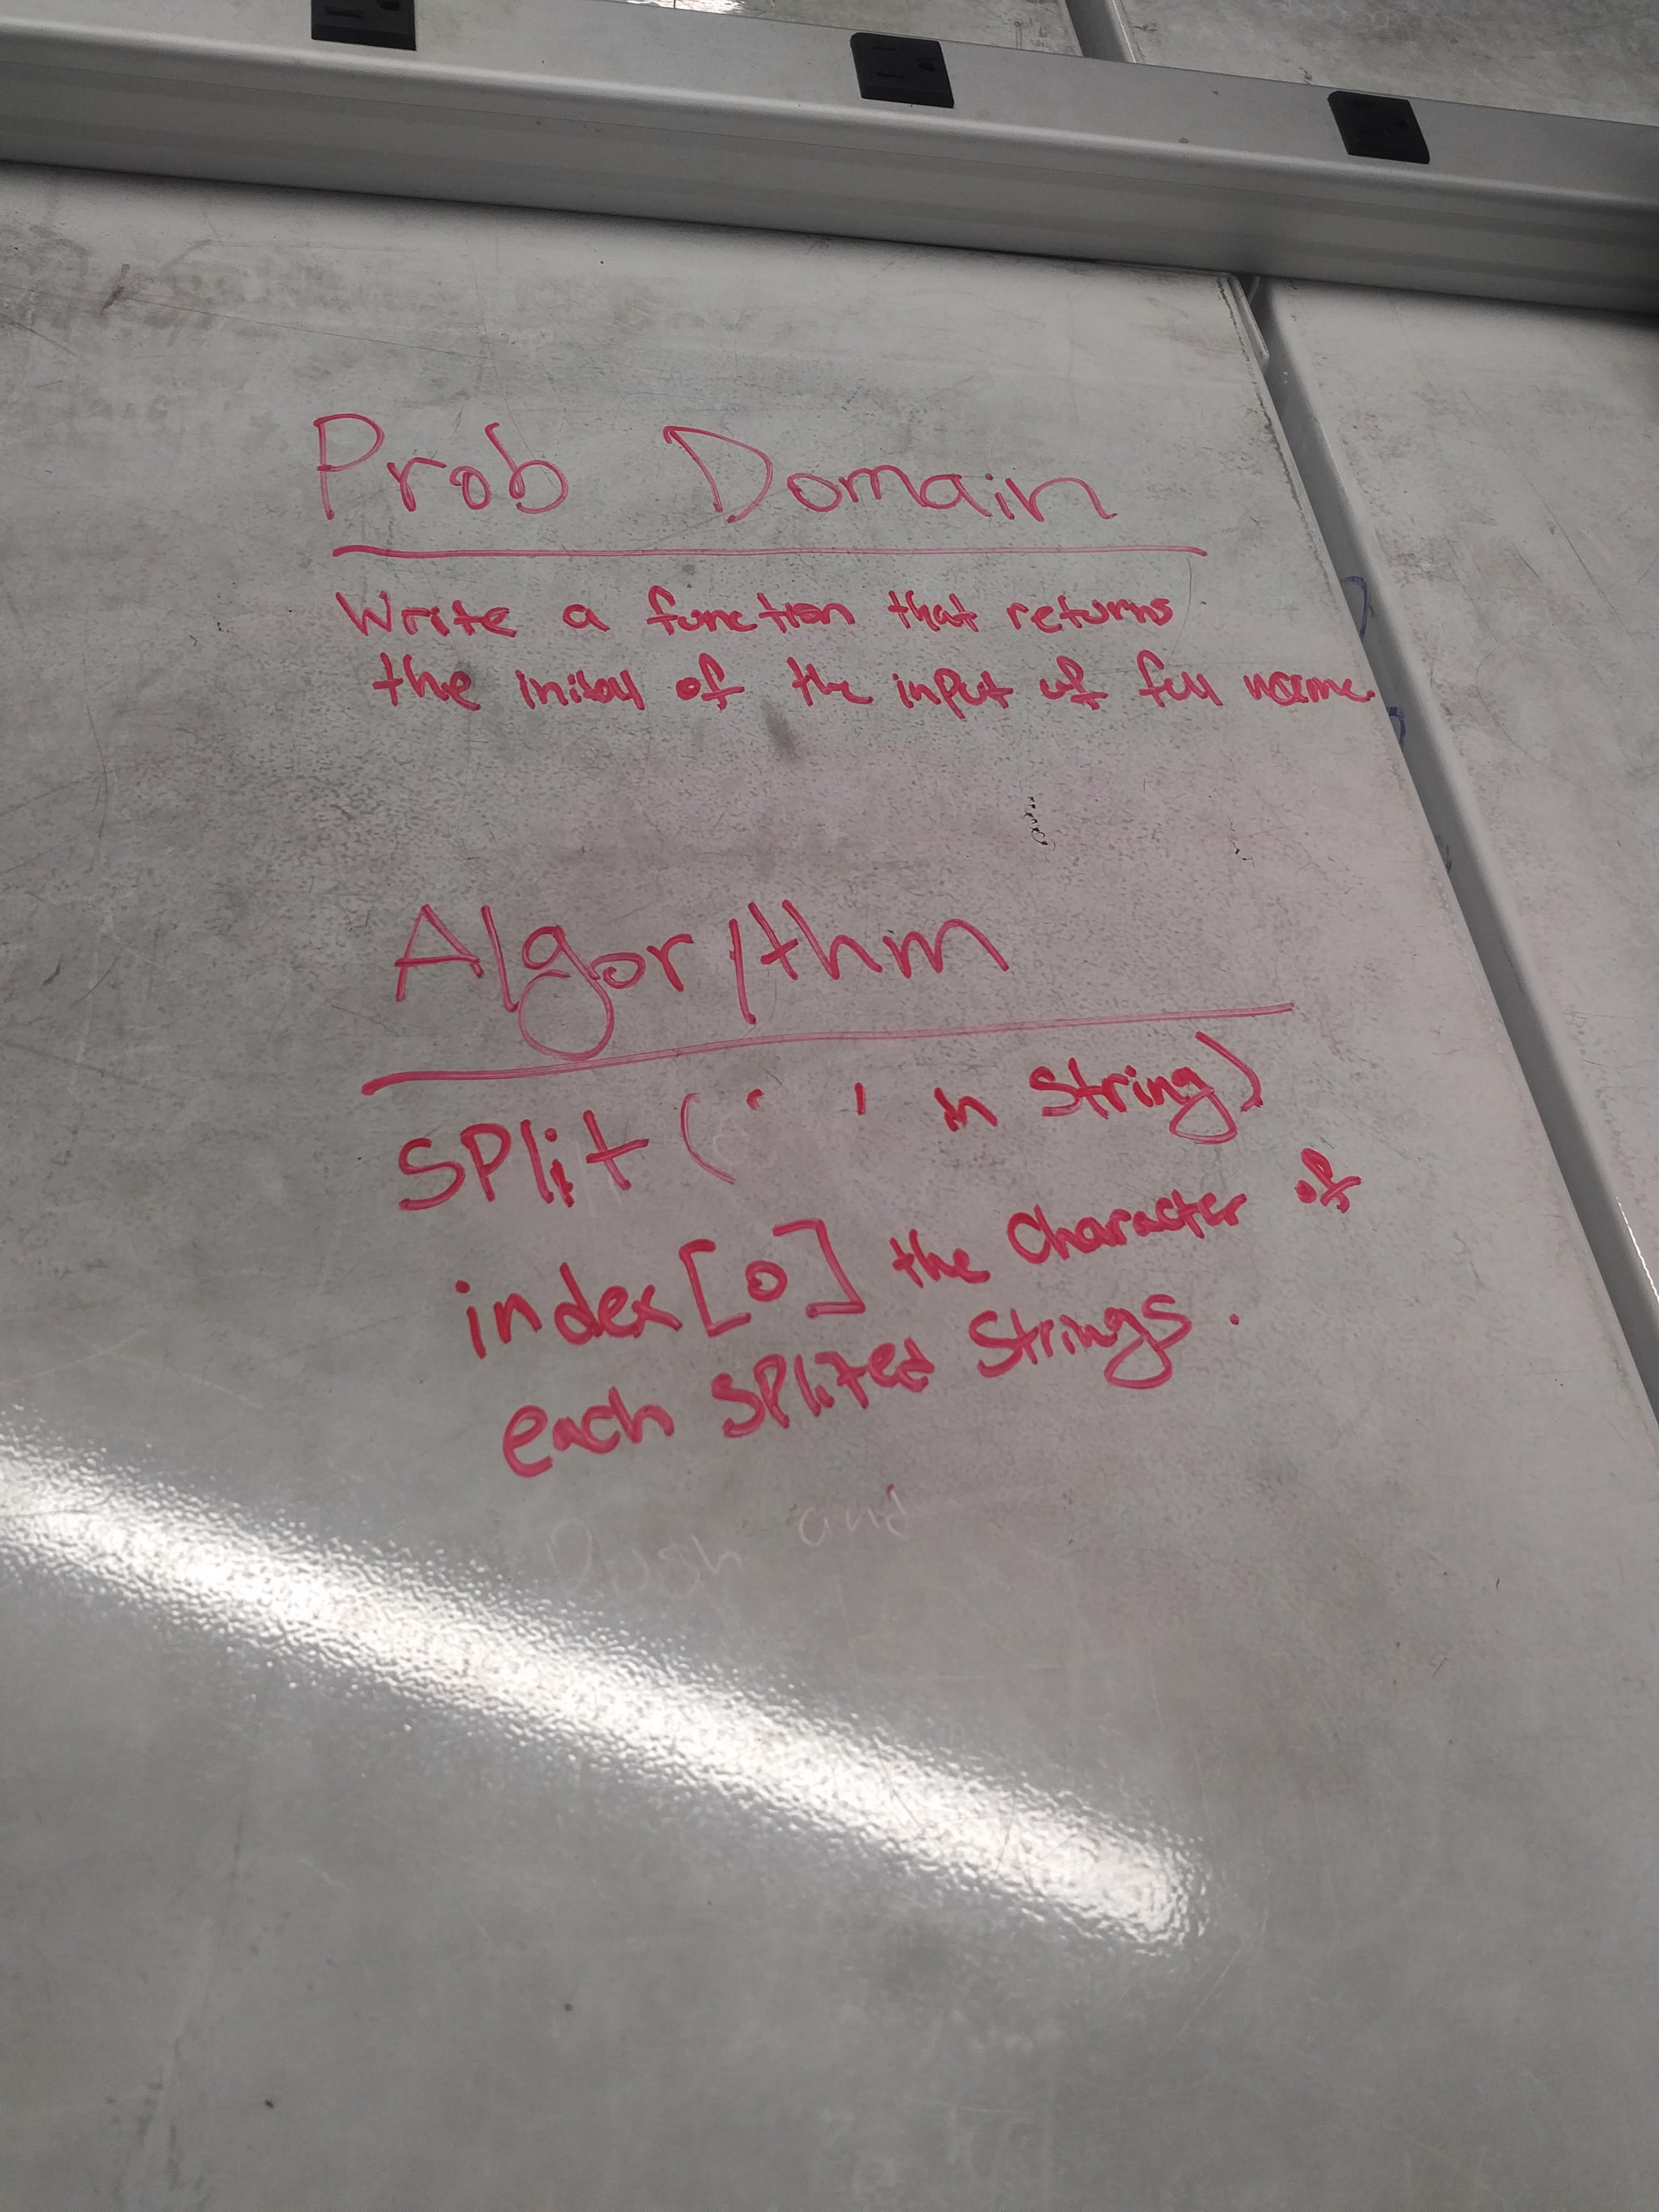 Prob Domain
Write a function that returns
the initial of the input of full name
Algorithm
SPlit (' ' in String)
index[0] the Character of
each SPlited Strings.
Push and